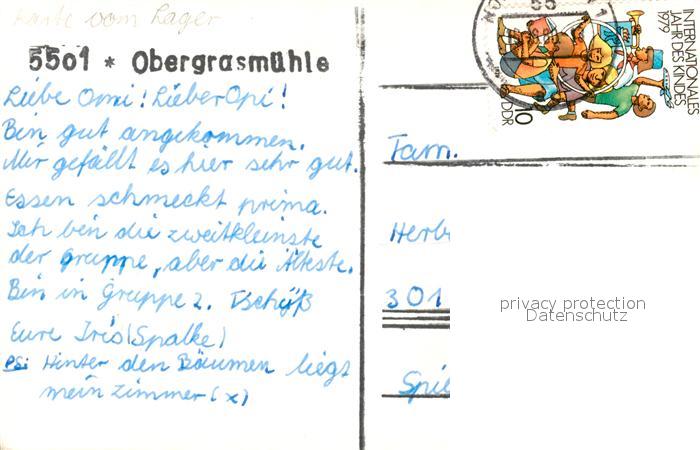 Karte vom Lager
55o1 * Obergrasmühle
Liebe Omi! Lieber Opi!
Bin gut angekommen.
Mir gefällt es hier sehr gut.
Essen schmeckt prima.
Ich bin die zweitkleinste
der gruppe, aber die Älteste.
Bin in Gruppe 2. Tschüß
Eure Iris (Spalke)
PS: Hinter den Bäumen liegt
mein Zimmer (x)
INTERNATIONALES
JAHR DES KINDES
1979
DDR
55
Fam.
Herb
301
Spie
privacy protection
Datenschutz